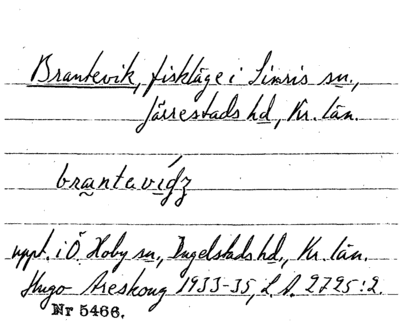 Brantevik, fiskläge i Simris sn.,
Järrestads hd, Kr. län.
brantavígʒ
uppt. i Ö. Hoby sn, Ingelstads hd., Kr. län.
Hugo Areskoug 1933-35, L.A. 2725:2.
Nr 5466.